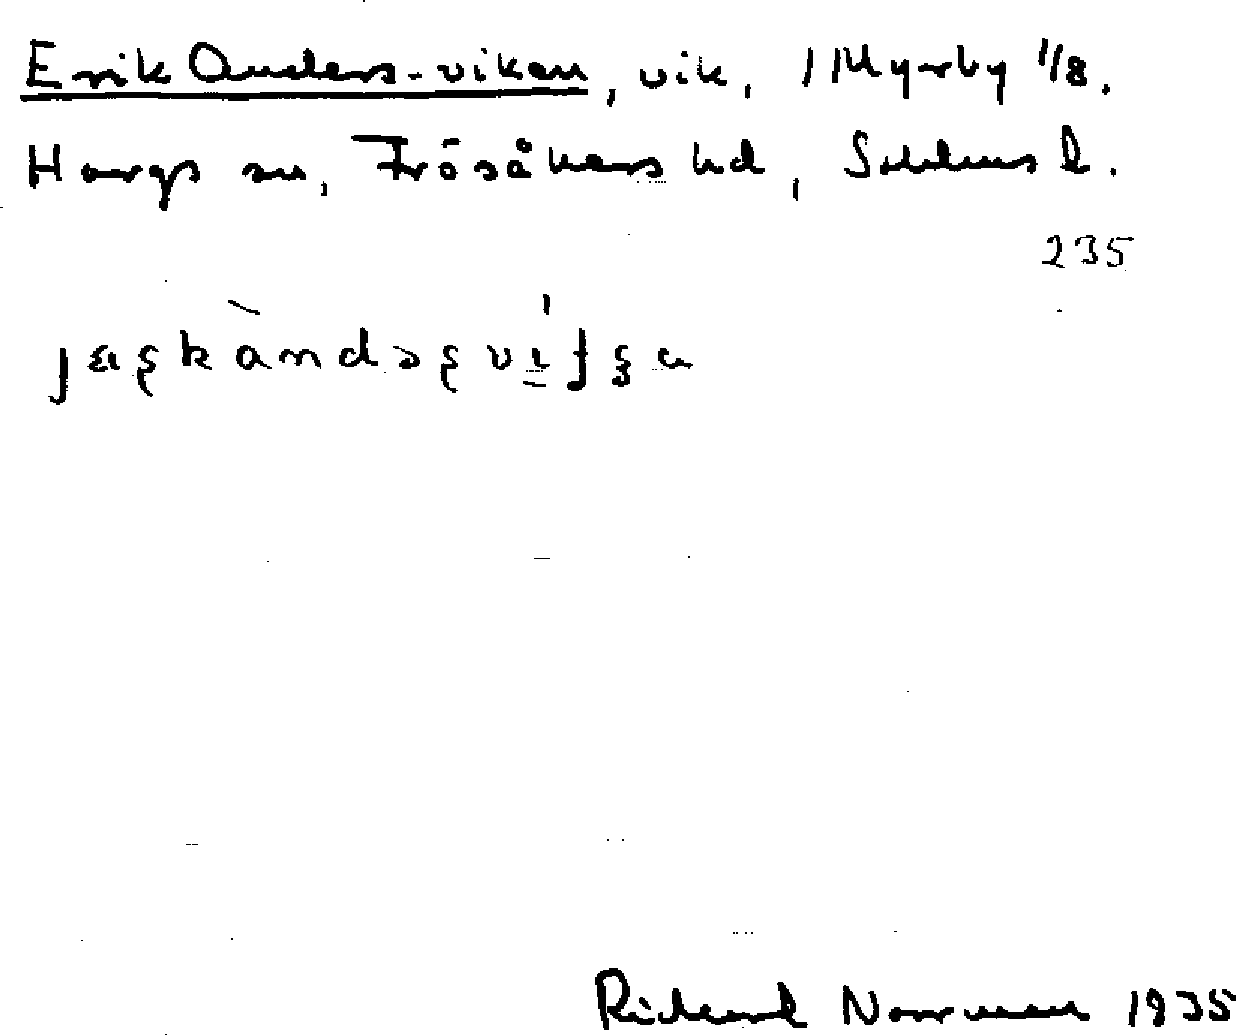 Erik Anders-viken, vik, 1 Myrby 1/8.
Hargs sn, Frösåkers hd, Sthlms l.
235
Richard Norrman 1935